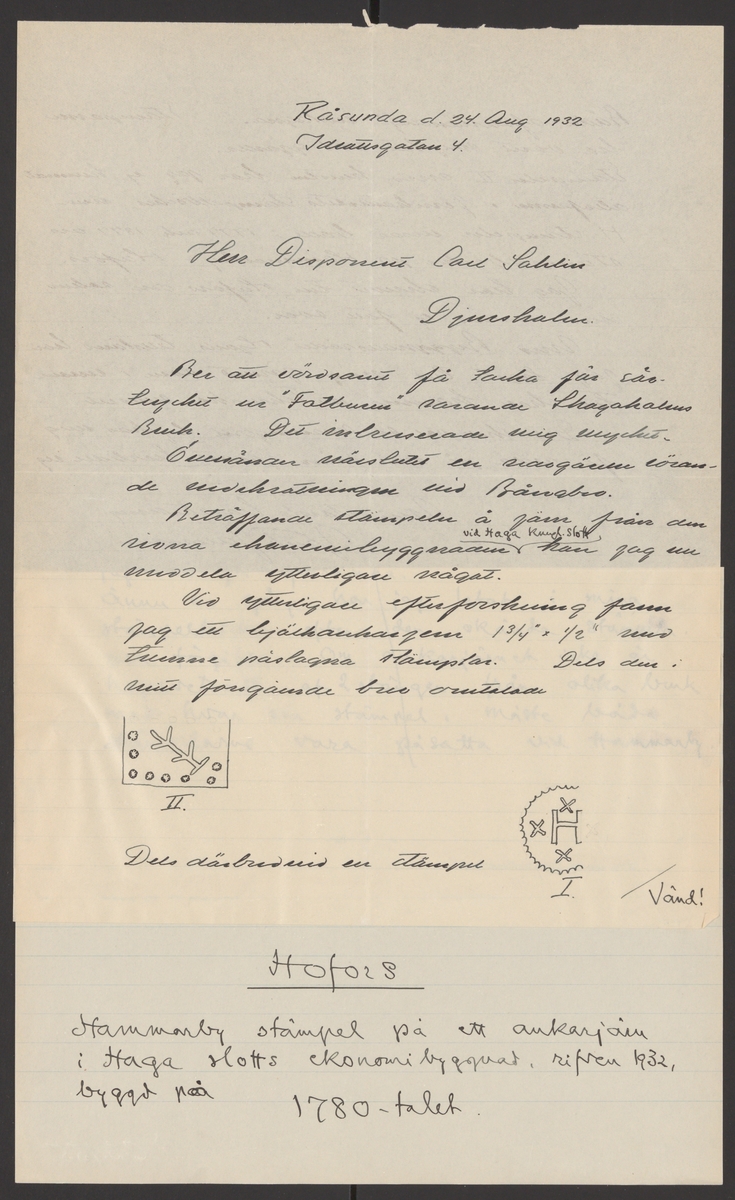 Råsunda d. 24. Aug 1932
Idrottsgatan 4.
Herr Disponent Carl Sahlin
Djursholm.
Ber att vördsamt få tacka för sär-
trycket ur "Fatburen" rörande Skogaholms
Bruk. Det intresserade mig mycket.
Översänder närslutet en redogörelse röran-
de undersökningen vid Bångbro.
Beträffande stämpeln å järn från den
vid Haga Kungl. Slott,
rivna ekonomibyggnaden kan jag nu
meddela ytterligare något.
Vid ytterligare efterforskning fann
jag ett bjälkankarjern 1 3/4" x 1/2" med
tvenne påslagna stämplar. Dels den i
mitt föregående brev omtalade
II.
H
Dels därbredvid en stämpel
I.
Vänd!
Hofors
Hammarby stämpel på ett ankarjärn
i Haga slotts ekonomibyggnad, rifven 1932,
byggd på
1780-talet.